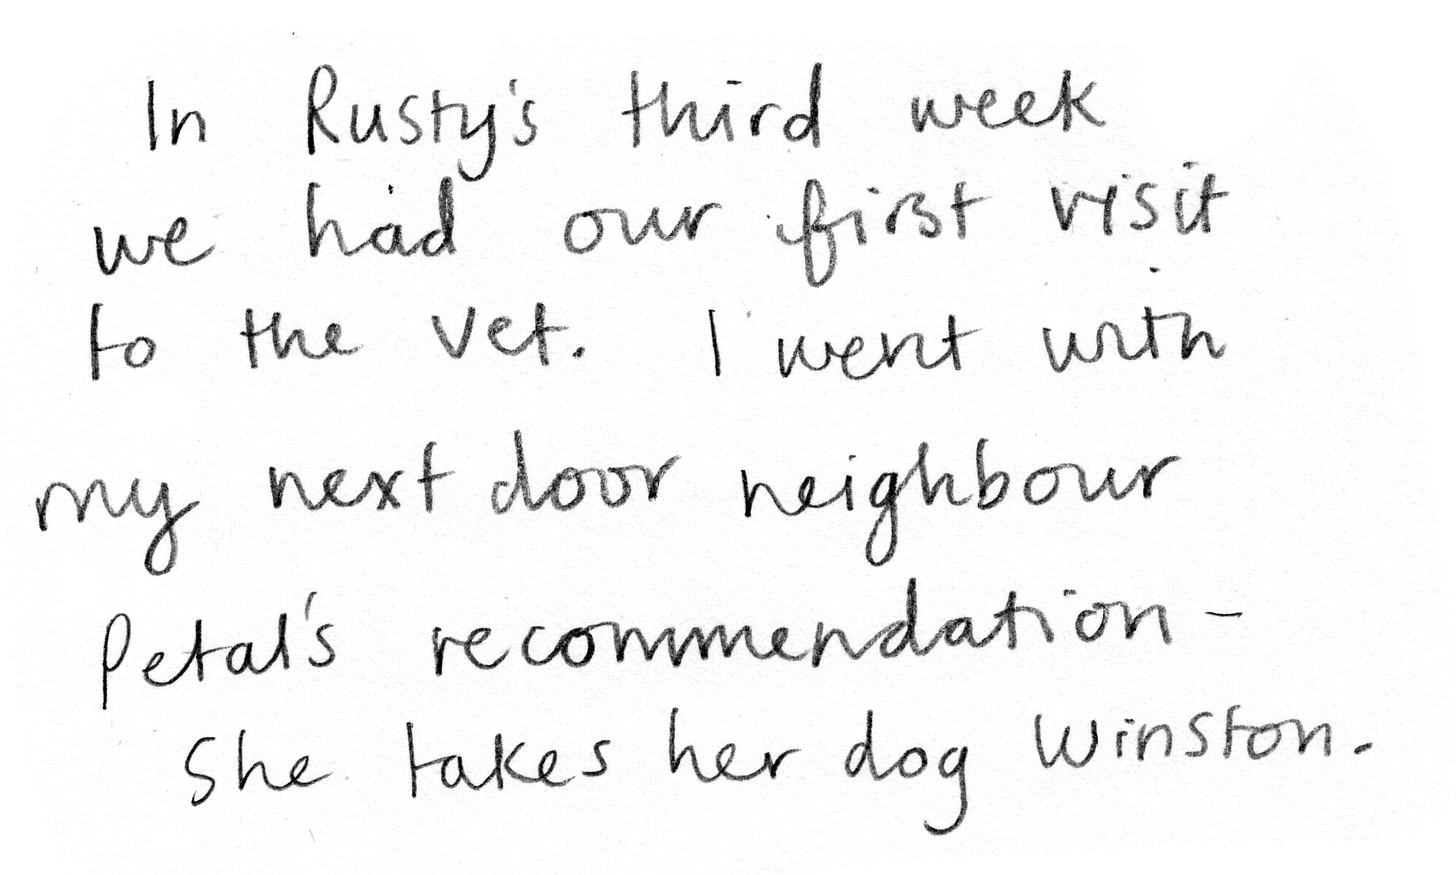 In Rusty's third week
we had our first visit
to the vet. I went with
my next door neighbour
Petal's recommendation -
She takes her dog Winston.